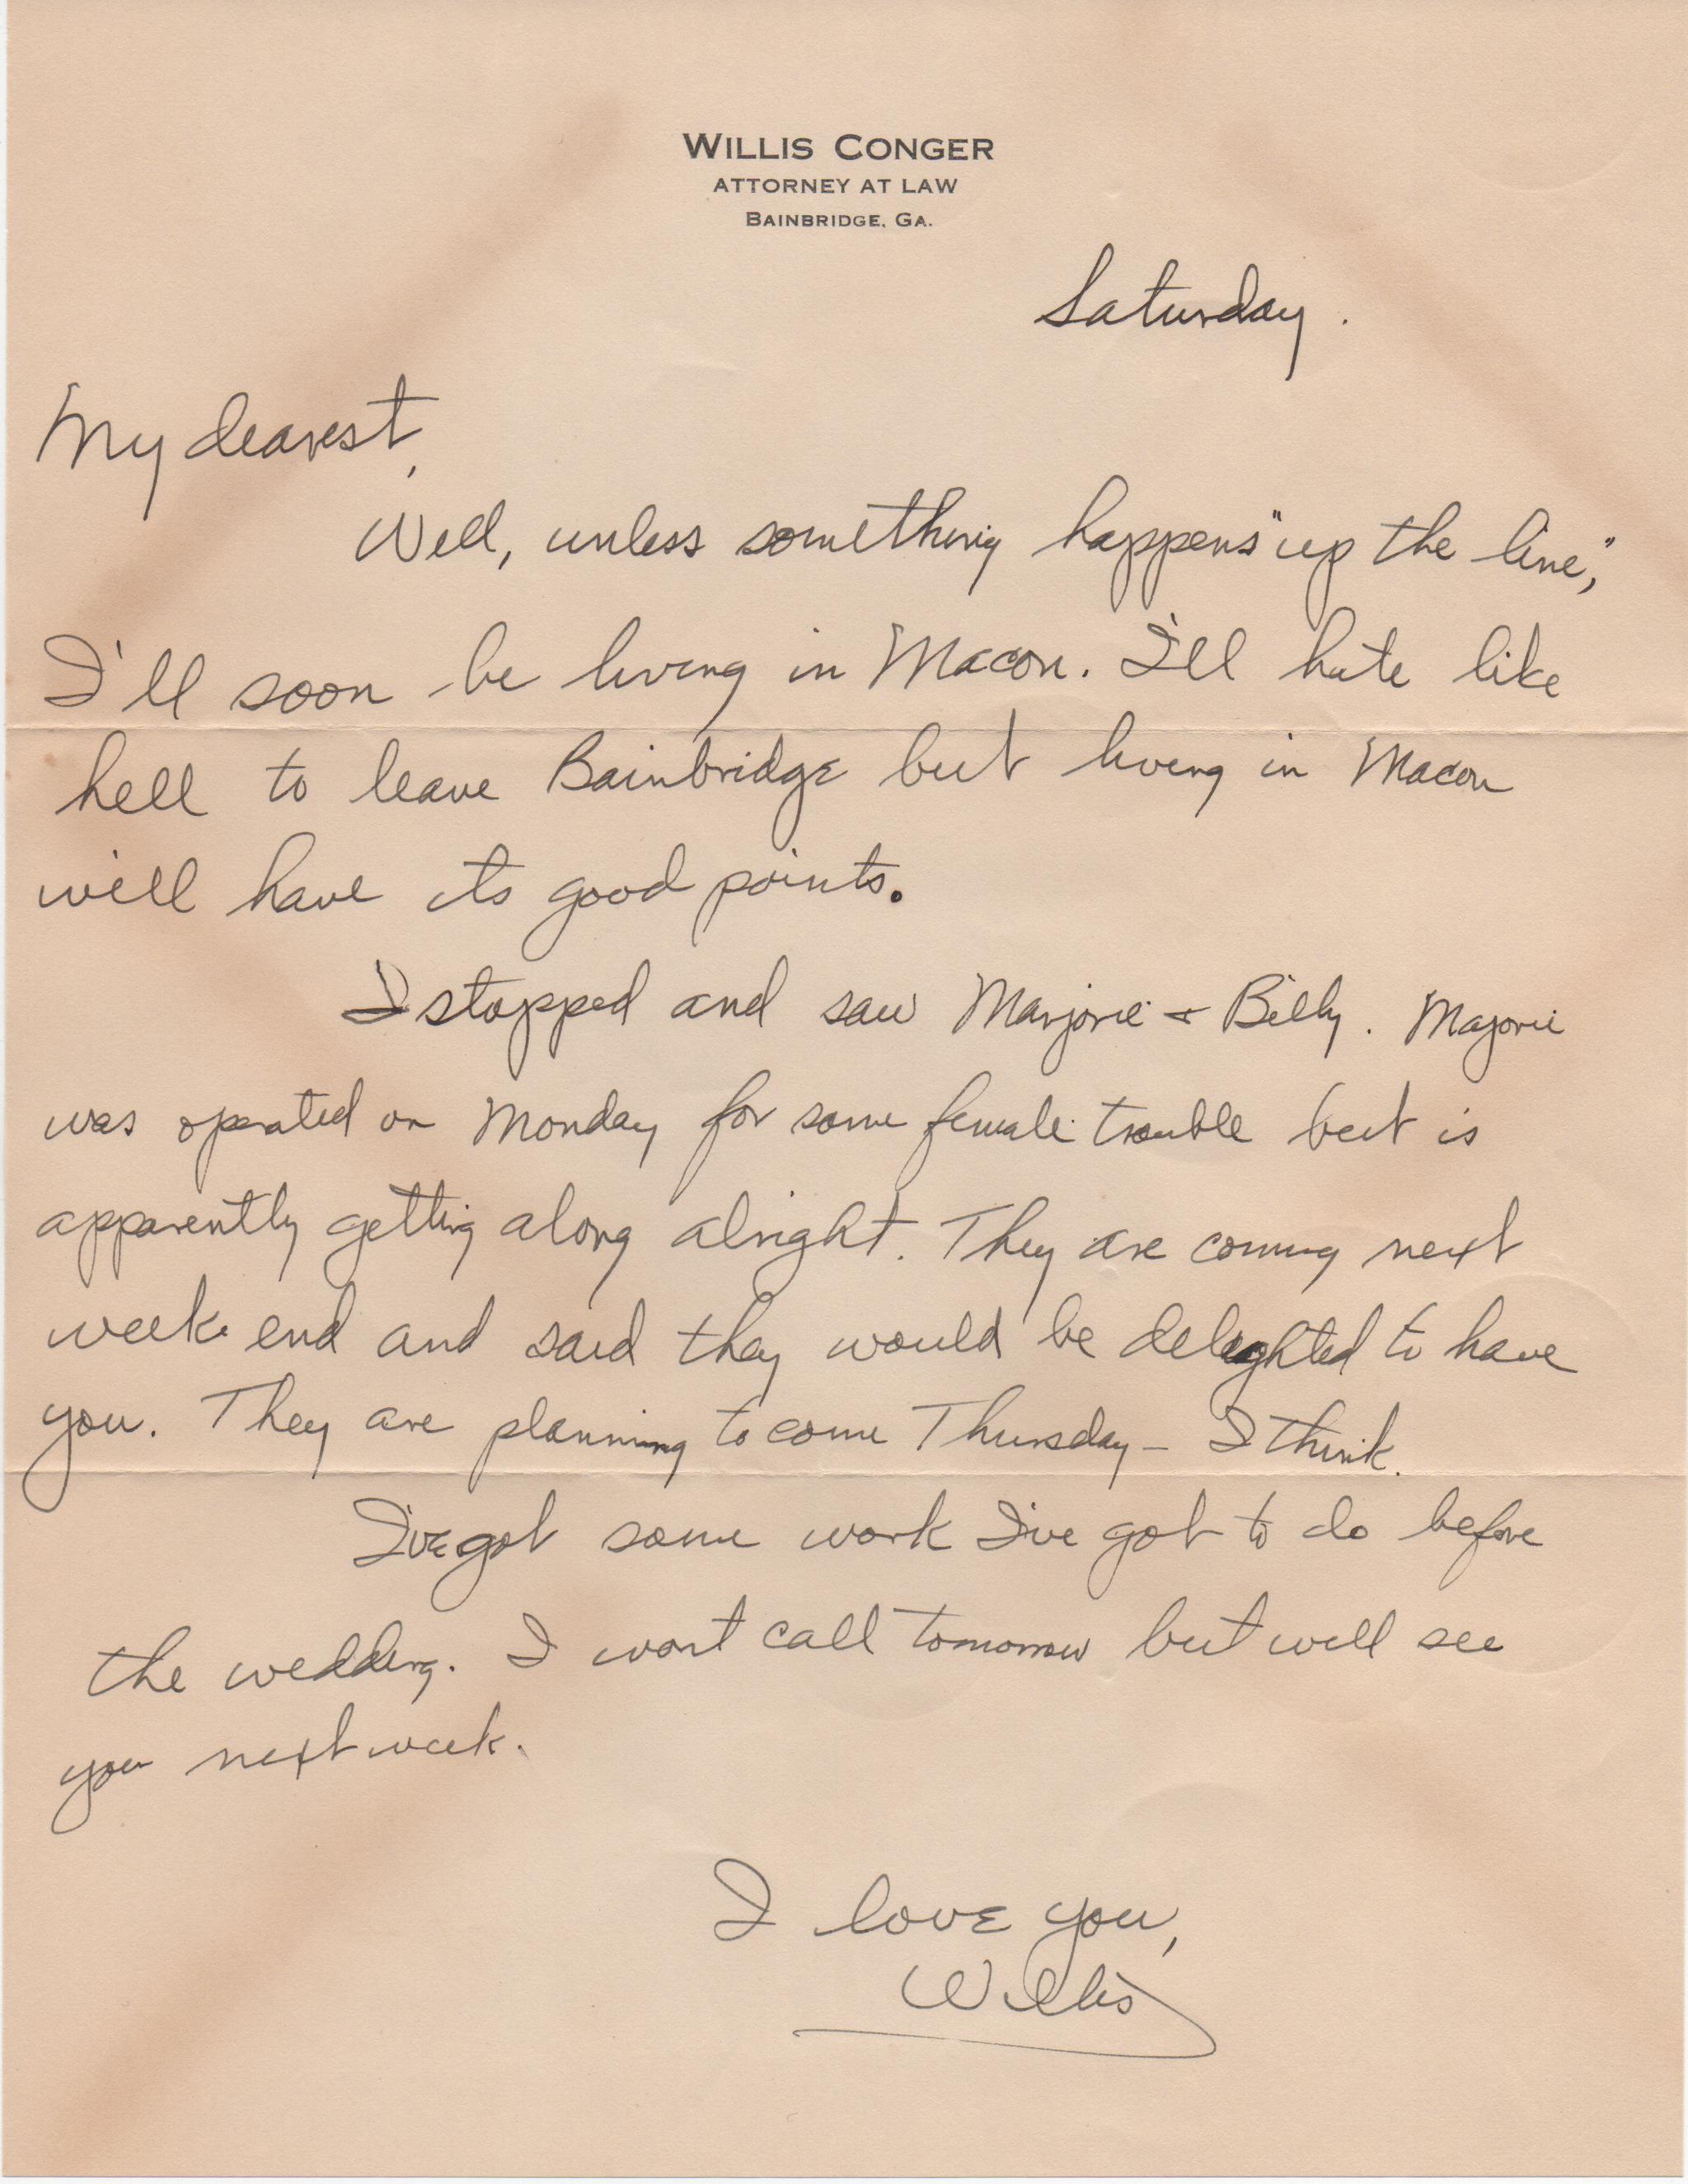 WILLIS CONGER
ATTORNEY AT LAW
BAINBRIDGE, GA.
Saturday.
My dearest,
Well, unless something happens "up the line,"
I'll soon be living in Macon. I'll hate like
hell to leave Bainbridge but living in Macon
will have its good points.
I stopped and saw Marjorie + Billy. Majorie
was operated on Monday for some female trouble but is
apparently getting along alright. They are coming next
week end and said they would be delighted to have
you. They are planning to come Thursday - I think.
I've got some work I've got to do before
the wedding. I wont call tomorrow but will see
you next week.
I love you,
Willis